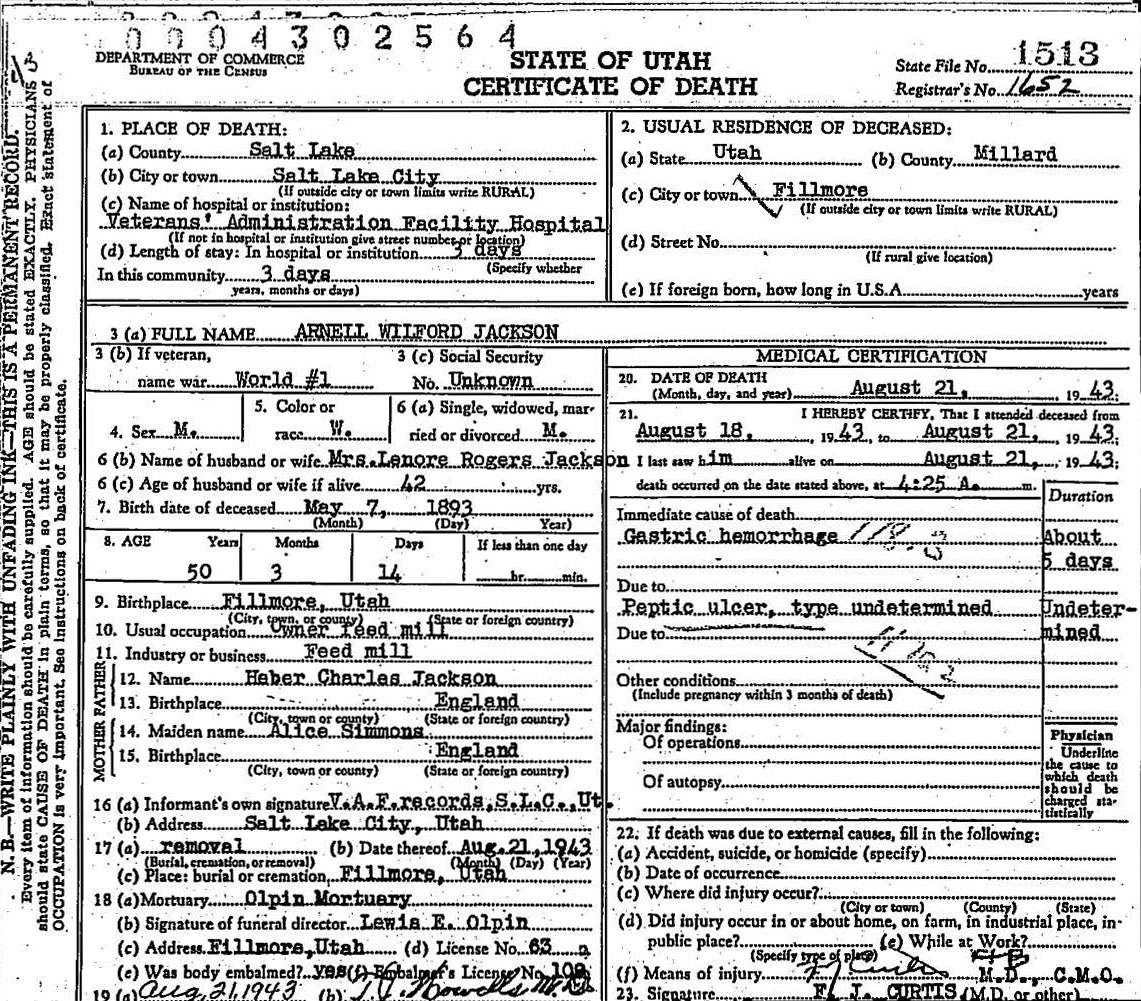 0004302564
DEPARTMENT OF COMMERCE
BUREAU OF THE CENSUS
STATE OF UTAH
CERTIFICATE OF DEATH
State File No. 1513
Registrar's No. 1652
N. B.—WRITE PLAINLY WITH UNFADING INK—THIS IS A PERMANENT RECORD.
Every item of information should be carefully supplied. AGE should be stated EXACTLY. PHYSICIANS
should state CAUSE OF DEATH in plain terms, so that it may be properly classified. Exact statement of
OCCUPATION is very important. See instructions on back of certificate.
1. PLACE OF DEATH:
(a) County Salt Lake
(b) City or town Salt Lake City
(If outside city or town limits write RURAL)
(c) Name of hospital or institution:
Veterans' Administration Facility Hospital
(If not in hospital or institution give street number or location)
(d) Length of stay: In hospital or institution 3 days
(Specify whether
In this community 3 days
years, months or days)
2. USUAL RESIDENCE OF DECEASED:
(a) State Utah (b) County Millard
(c) City or town Fillmore
(If outside city or town limits write RURAL)
(d) Street No.
(If rural give location)
(e) If foreign born, how long in U.S.A. years
3 (a) FULL NAME ARNELL WILFORD JACKSON
3 (b) If veteran,
name war World #1
3 (c) Social Security
No. Unknown
4. Sex M.
5. Color or
race W.
6 (a) Single, widowed, mar-
ried or divorced M.
6 (b) Name of husband or wife Mrs.Lenore Rogers Jackson
6 (c) Age of husband or wife if alive 42 yrs.
7. Birth date of deceased May 7, 1893
(Month) (Day) Year)
8. AGE Years Months Days If less than one day
50 3 14 hr. min.
9. Birthplace Fillmore, Utah
(City, town, or county) (State or foreign country)
10. Usual occupation Owner feed mill
11. Industry or business Feed mill
FATHER
12. Name Heber Charles Jackson
13. Birthplace England
(City, town or county) (State or foreign country)
MOTHER
14. Maiden name Alice Simmons
15. Birthplace England
(City, town or county) (State or foreign country)
16 (a) Informant's own signature V.A.F.records,S.L.C.,Ut.
(b) Address Salt Lake City, Utah
17 (a) removal (b) Date thereof Aug.21,1943
(Burial, cremation, or removal) (Month) (Day) (Year)
(c) Place: burial or cremation Fillmore, Utah
18 (a) Mortuary Olpin Mortuary
(b) Signature of funeral director Lewis E. Olpin
(c) Address Fillmore,Utah (d) License No. 63
(e) Was body embalmed? yes (f) Embalmer's License No.
19 (a) Aug 21, 1943 (b)
MEDICAL CERTIFICATION
20. DATE OF DEATH
(Month, day, and year) August 21, 1943.
21. I HEREBY CERTIFY, That I attended deceased from
August 18, 1943, to August 21, 1943;
I last saw him alive on August 21, 1943;
death occurred on the date stated above, at 4:25 A. m.
Duration
Immediate cause of death
Gastric hemorrhage About
5 days
Due to
Peptic ulcer, type undetermined Undeter-
Due to mined
Other conditions
(Include pregnancy within 3 months of death)
Major findings:
Of operations
Of autopsy
Physician
Underline
the cause to
which death
should be
charged sta-
tistically
22. If death was due to external causes, fill in the following:
(a) Accident, suicide, or homicide (specify)
(b) Date of occurrence
(c) Where did injury occur?
(City or town) (County) (State)
(d) Did injury occur in or about home, on farm, in industrial place, in-
public place? (e) While at Work?
(Specify type of place)
(f) Means of injury M.D., C.M.O.
23. Signature F. J. CURTIS (M.D. or other)